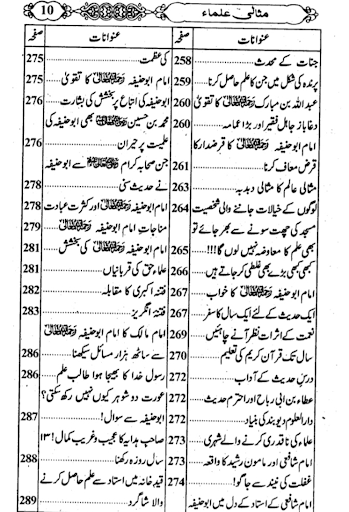 مثالی علماء
10
عنوانات
صفحہ
جنات کے محدث
258
پرندہ کی شکل میں جن کا علم حاصل کرنا
259
عبداللہ بن مبارک رحمۃ اللہ تعالیٰ کا تقویٰ
260
دغاباز جاہل فقیر اور بڑا عمامہ
260
امام ابوحنیفہ رحمۃ اللہ تعالیٰ کا قرضدار کا
قرض معاف کرنا
261
مثالی عالم کا مثالی دبدبہ
263
لوگوں کے خیالات جاننے والی شخصیت
264
مسجد کی چھت سونے سے بھر جائے تو
بھی علم کا معاوضہ نہیں لوں گا!!!
265
کبھی کبھی بڑے بھی غلطی کر جاتے ہیں
266
امام ابوحنیفہ رحمۃ اللہ تعالیٰ کا خواب
267
ایک حدیث کے لئے ایک سال کا سفر
267
نعمت کے اثرات نظر آنے چاہئیں
269
سال تک قرآن کریم کی تعلیم
270
درس حدیث کے آداب
272
عطاء بن ابی رباح اور احترام حدیث
272
دارالعلوم دیوبند کی بنیاد
272
علماء کی ناقدری کرنے والے شہری
273
امام شافعی اور مامون رشید کا واقعہ
273
غفلت کی نیند سے جاگو!
274
امام شافعی کے استاد کے دل میں ابوحنیفہ
عنوانات
صفحہ
کی عظمت
275
امام ابوحنیفہ رحمۃ اللہ تعالیٰ کا تقویٰ
275
ابوحنیفہ کی اتباع پر بخشش کی بشارت
276
محمد بن حسین رحمۃ اللہ تعالیٰ بھی ابوحنیفہ کی
علمیت پر حیران
276
جن صحابہ کرام سے ابوحنیفہ
نے حدیث سنی
278
امام ابوحنیفہ رحمۃ اللہ تعالیٰ اور کثرت عبادت
278
مناجات امام ابوحنیفہ رحمۃ اللہ تعالیٰ
279
امام ابوحنیفہ رحمۃ اللہ تعالیٰ کی بخشش
281
علماء حق کی قربانیاں
281
فتنہ اکبری کا مقابلہ
282
فتنہ انگریز
283
امام مالک کا امام ابوحنیفہ رحمۃ اللہ تعالیٰ
سے ساٹھ ہزار مسائل سیکھنا
286
رسول خدا کا بھیجا ہوا طالب علم
286
عورت دو شوہر کیوں نہیں رکھ سکتی؟
ابوحنیفہ سے سوال!
287
صاحب ہدایہ کا عجیب و غریب کمال! ۱۳
سال روزہ رکھنا
288
قید خانہ میں استاد سے علم حاصل کرنے
والا شاگرد
289